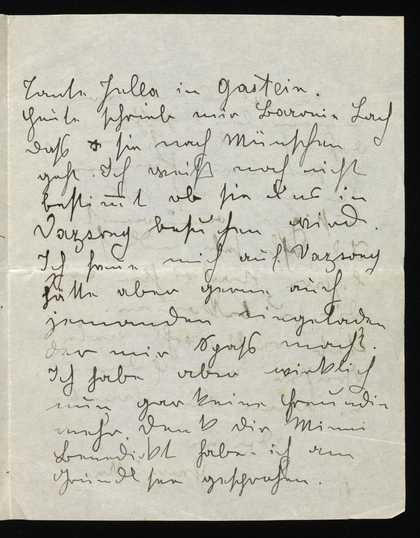 Tante Jella in Gastein.
Heute schrieb mir Baronin Lach
dass sie nach München
geht. Ich weiß noch nicht
bestimmt ob sie uns in
Vazsony besuchen wird.
Ich freue mich auf Vazsony
hätte aber gerne auch
jemanden eingeladen
der mir Spaß macht.
Ich habe aber wirklich
nun gar keine Freundin
mehr. Denk dir Minni
Benedikt habe ich am
Grundlsee gesprochen.